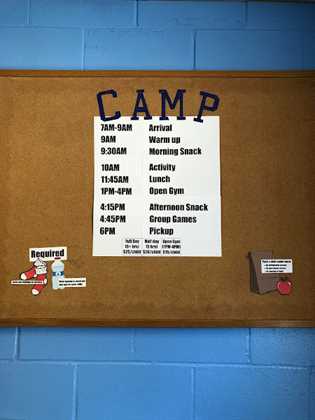 CAMP
7AM-9AM Arrival
9AM Warm up
9:30AM Morning Snack
10AM Activity
11:45AM Lunch
1PM-4PM Open Gym
4:15PM Afternoon Snack
4:45PM Group Games
6PM Pickup
Full Day Half day Open Gym
Required